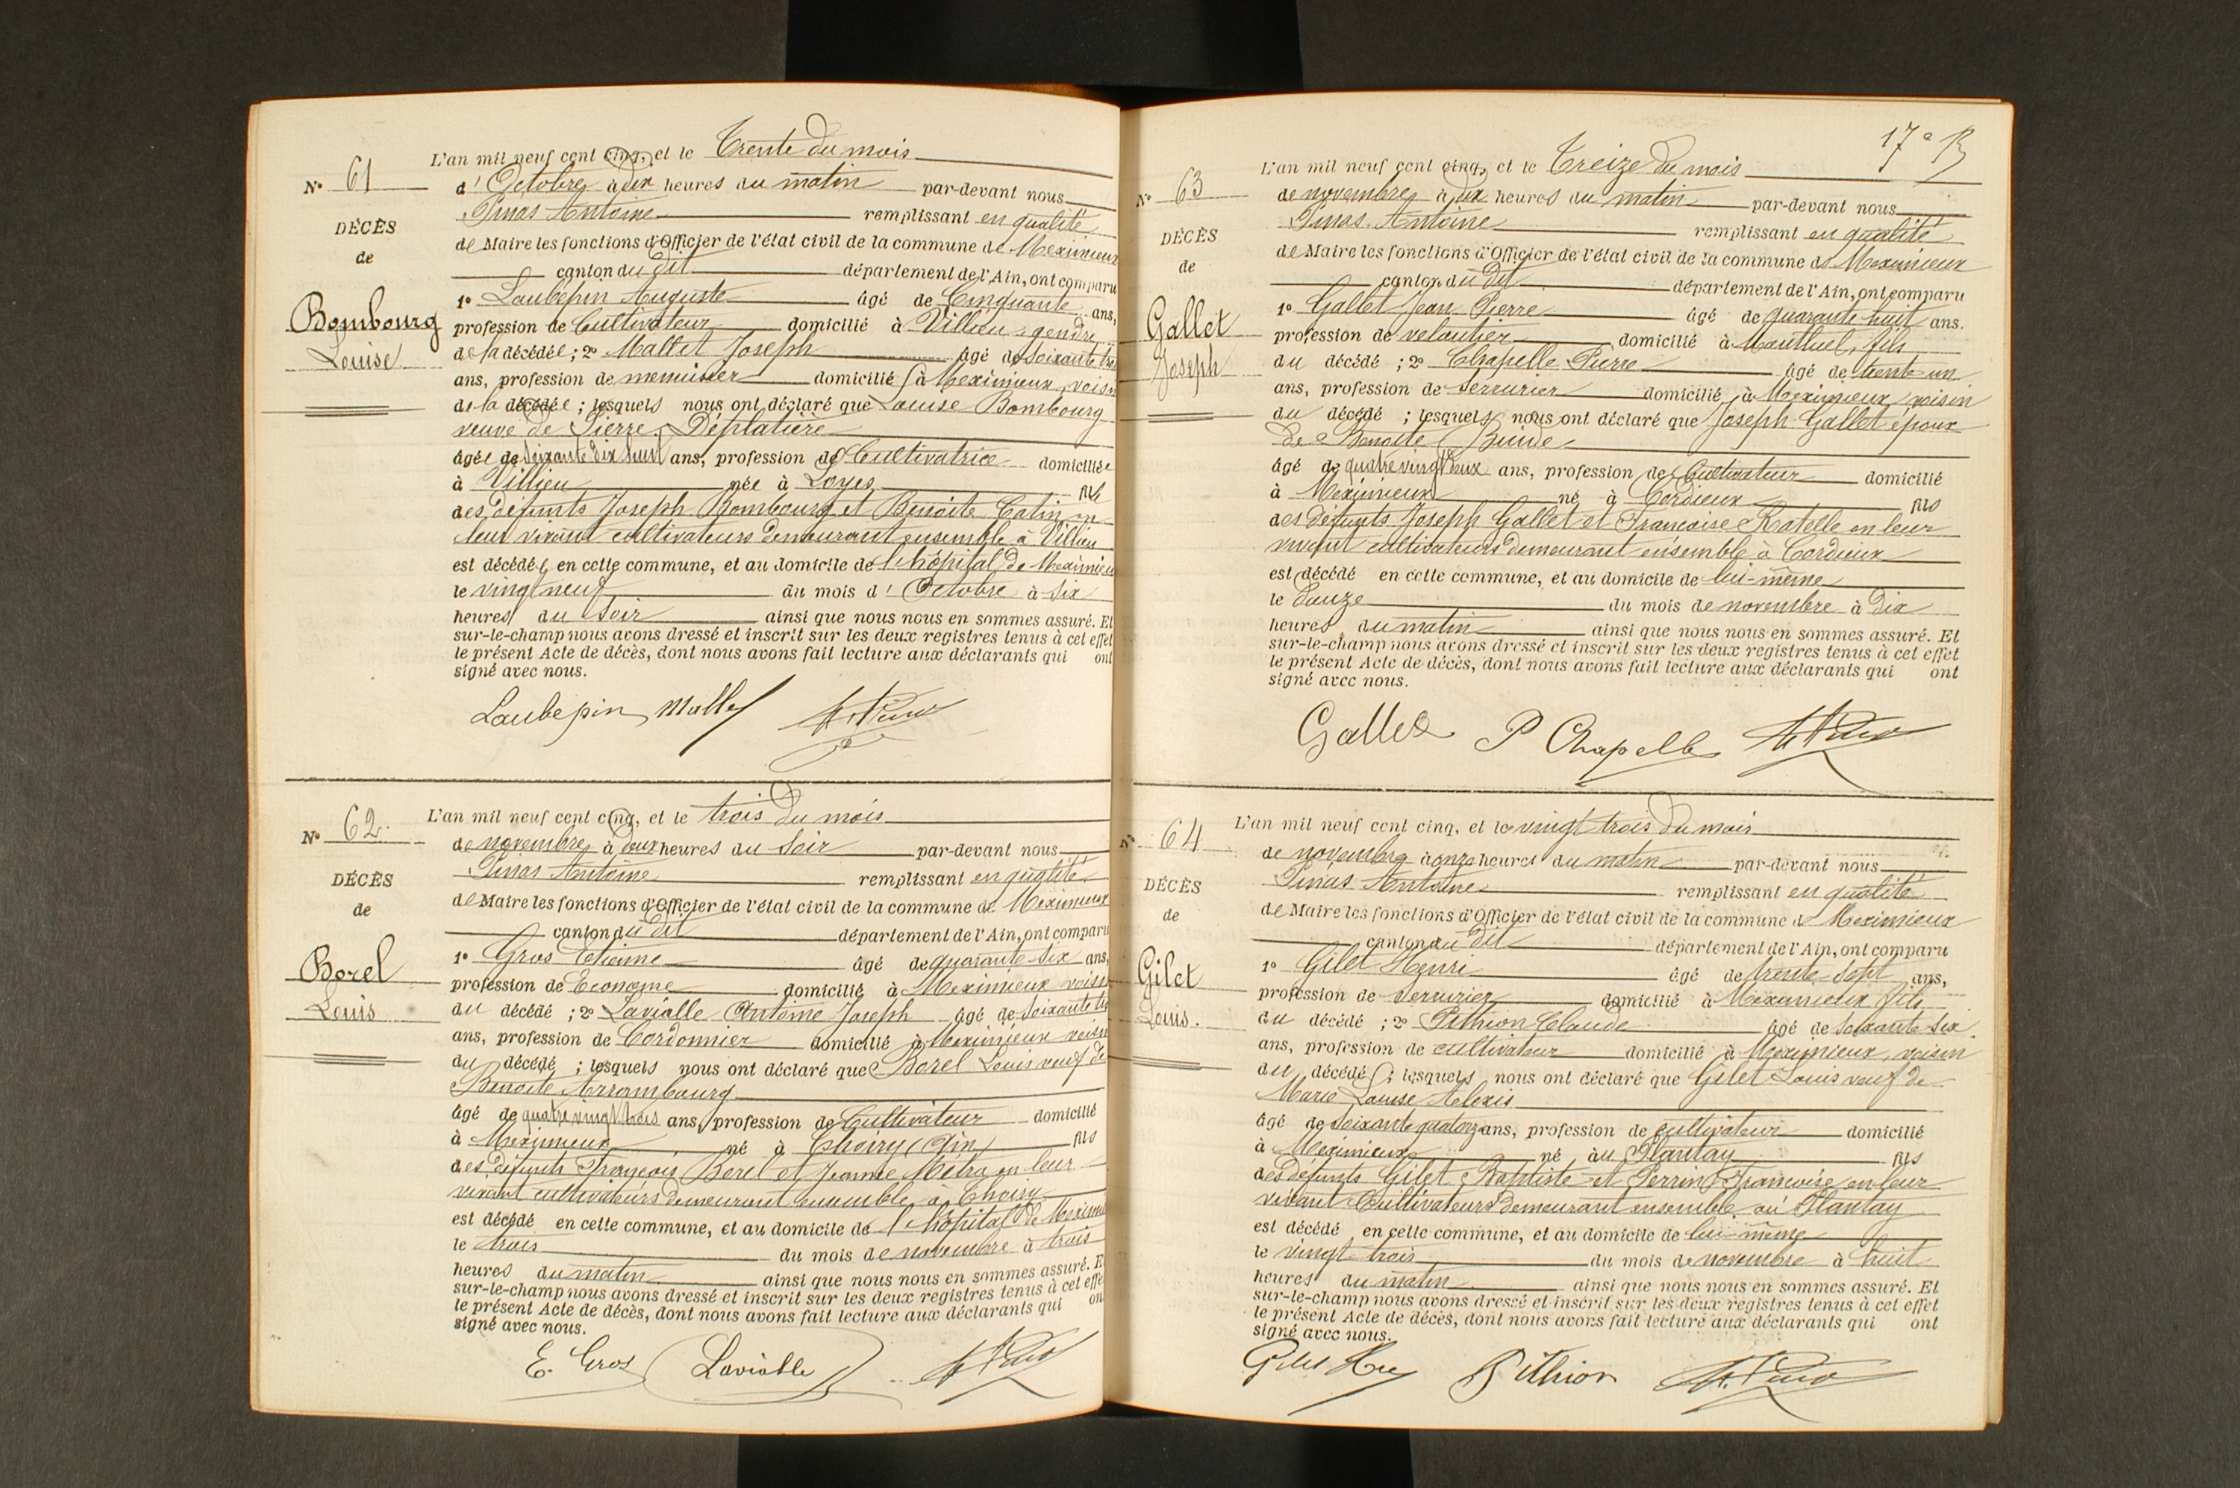 N° 61
DÉCÈS
de
Bombourg
Louise
L'an mil neuf cent cinq, et le Trente du mois
d'Octobre à dix heures du matin par-devant nous
Pinas Antoine remplissant en qualité
de Maire les fonctions d'Officier de l'état civil de la commune de Meximieux
canton du dit département de l'Ain, ont comparu
1° Laubepin Auguste âgé de Cinquante ans,
profession de Cultivateur domicilié à Villieu, gendre
de la décédée ; 2° Mallet Joseph âgé de Soixante
ans, profession de menuisier domicilié à Meximieux, voisin
de la décédée ; lesquels nous ont déclaré que Louise Bombourg
veuve de Pierre Déplatière
âgée de Soixante dix ans, profession de Cultivatrice domiciliée
à Villieu née à Loyes fille
des défunts Joseph Bombourg et Benoite Catin en
leur vivant cultivateurs demeurant ensemble à Villieu
est décédée en cette commune, et au domicile de l'hôpital de Meximieux
le vingt neuf du mois d'Octobre à six
heures du soir ainsi que nous nous en sommes assuré. Et
sur-le-champ nous avons dressé et inscrit sur les deux registres tenus à cet effet
le présent Acte de décès, dont nous avons fait lecture aux déclarants qui ont
signé avec nous.
Laubepin Mallet
N° 62
DÉCÈS
de
Borel
Louis
L'an mil neuf cent cinq, et le trois du mois
de novembre à deux heures du soir par-devant nous
Pinas Antoine remplissant en qualité
de Maire les fonctions d'Officier de l'état civil de la commune de Meximieux
canton du dit département de l'Ain, ont comparu
1° Gros Etienne âgé de quarante-six ans,
profession de Econome domicilié à Meximieux voisin
du décédé ; 2° Lavialle Antoine Joseph âgé de soixante
ans, profession de Cordonnier domicilié à Meximieux voisin
du décédé ; lesquels nous ont déclaré que Borel Louis veuf de
Benoite Arrombourg
âgé de quatre vingt trois ans, profession de Cultivateur domicilié
à Meximieux né à (Ain) fils
des défunts François Borel et Jeanne Mitra en leur
vivant cultivateurs demeurant ensemble à
est décédé en cette commune, et au domicile de l'hôpital de Meximieux
le trois du mois de novembre à trois
heures du matin ainsi que nous nous en sommes assuré. Et
sur-le-champ nous avons dressé et inscrit sur les deux registres tenus à cet effet
le présent Acte de décès, dont nous avons fait lecture aux déclarants qui ont
signé avec nous.
E. Gros Lavialle
17e
N° 63
DÉCÈS
de
Gallet
Joseph
L'an mil neuf cent cinq, et le Treize du mois
de novembre à dix heures du matin par-devant nous
Pinas Antoine remplissant en qualité
de Maire les fonctions d'Officier de l'état civil de la commune de Meximieux
canton du dit département de l'Ain, ont comparu
1° Gallet Jean Pierre âgé de quarante huit ans.
profession de veloutier domicilié à Montluel, fils
du décédé ; 2° Chapelle Pierre âgé de trente un
ans, profession de serrurier domicilié à Meximieux, voisin
du décédé ; lesquels nous ont déclaré que Joseph Gallet époux
de Benoite
âgé de quatre vingt deux ans, profession de Cultivateur domicilié
à Meximieux né à Cordieux fils
des défunts Joseph Gallet et Françoise Ratelle en leur
vivant cultivateurs demeurant ensemble à Cordieux
est décédé en cette commune, et au domicile de lui-même
le Douze du mois de novembre à Dix
heures du matin ainsi que nous nous en sommes assuré. Et
sur-le-champ nous avons dressé et inscrit sur les deux registres tenus à cet effet
le présent Acte de décès, dont nous avons fait lecture aux déclarants qui ont
signé avec nous.
Gallet P Chapelle
N° 64
DÉCÈS
de
Gilet
Louis.
L'an mil neuf cent cinq, et le vingt trois du mois
de novembre à onze heures du matin par-devant nous
Pinas Antoine remplissant en qualité
de Maire les fonctions d'Officier de l'état civil de la commune de Meximieux
canton du dit département de l'Ain, ont comparu
1° Gilet Henri âgé de trente-sept ans,
profession de serrurier domicilié à Meximieux fils
du décédé ; 2° Pithion Claude âgé de soixante six
ans, profession de cultivateur domicilié à Meximieux, voisin
du décédé ; lesquels nous ont déclaré que Gilet Louis veuf de
Marie Louise Alexis
âgé de soixante quatorze ans, profession de cultivateur domicilié
à Meximieux né au Plantay fils
des défunts Gilet Baptiste et Perrin Françoise en leur
vivant Cultivateurs demeurant ensemble au Plantay
est décédé en cette commune, et au domicile de lui-même
le vingt-trois du mois de novembre à huit
heures du matin ainsi que nous nous en sommes assuré. Et
sur-le-champ nous avons dressé et inscrit sur les deux registres tenus à cet effet
le présent Acte de décès, dont nous avons fait lecture aux déclarants qui ont
signé avec nous.
Gilet Pithion